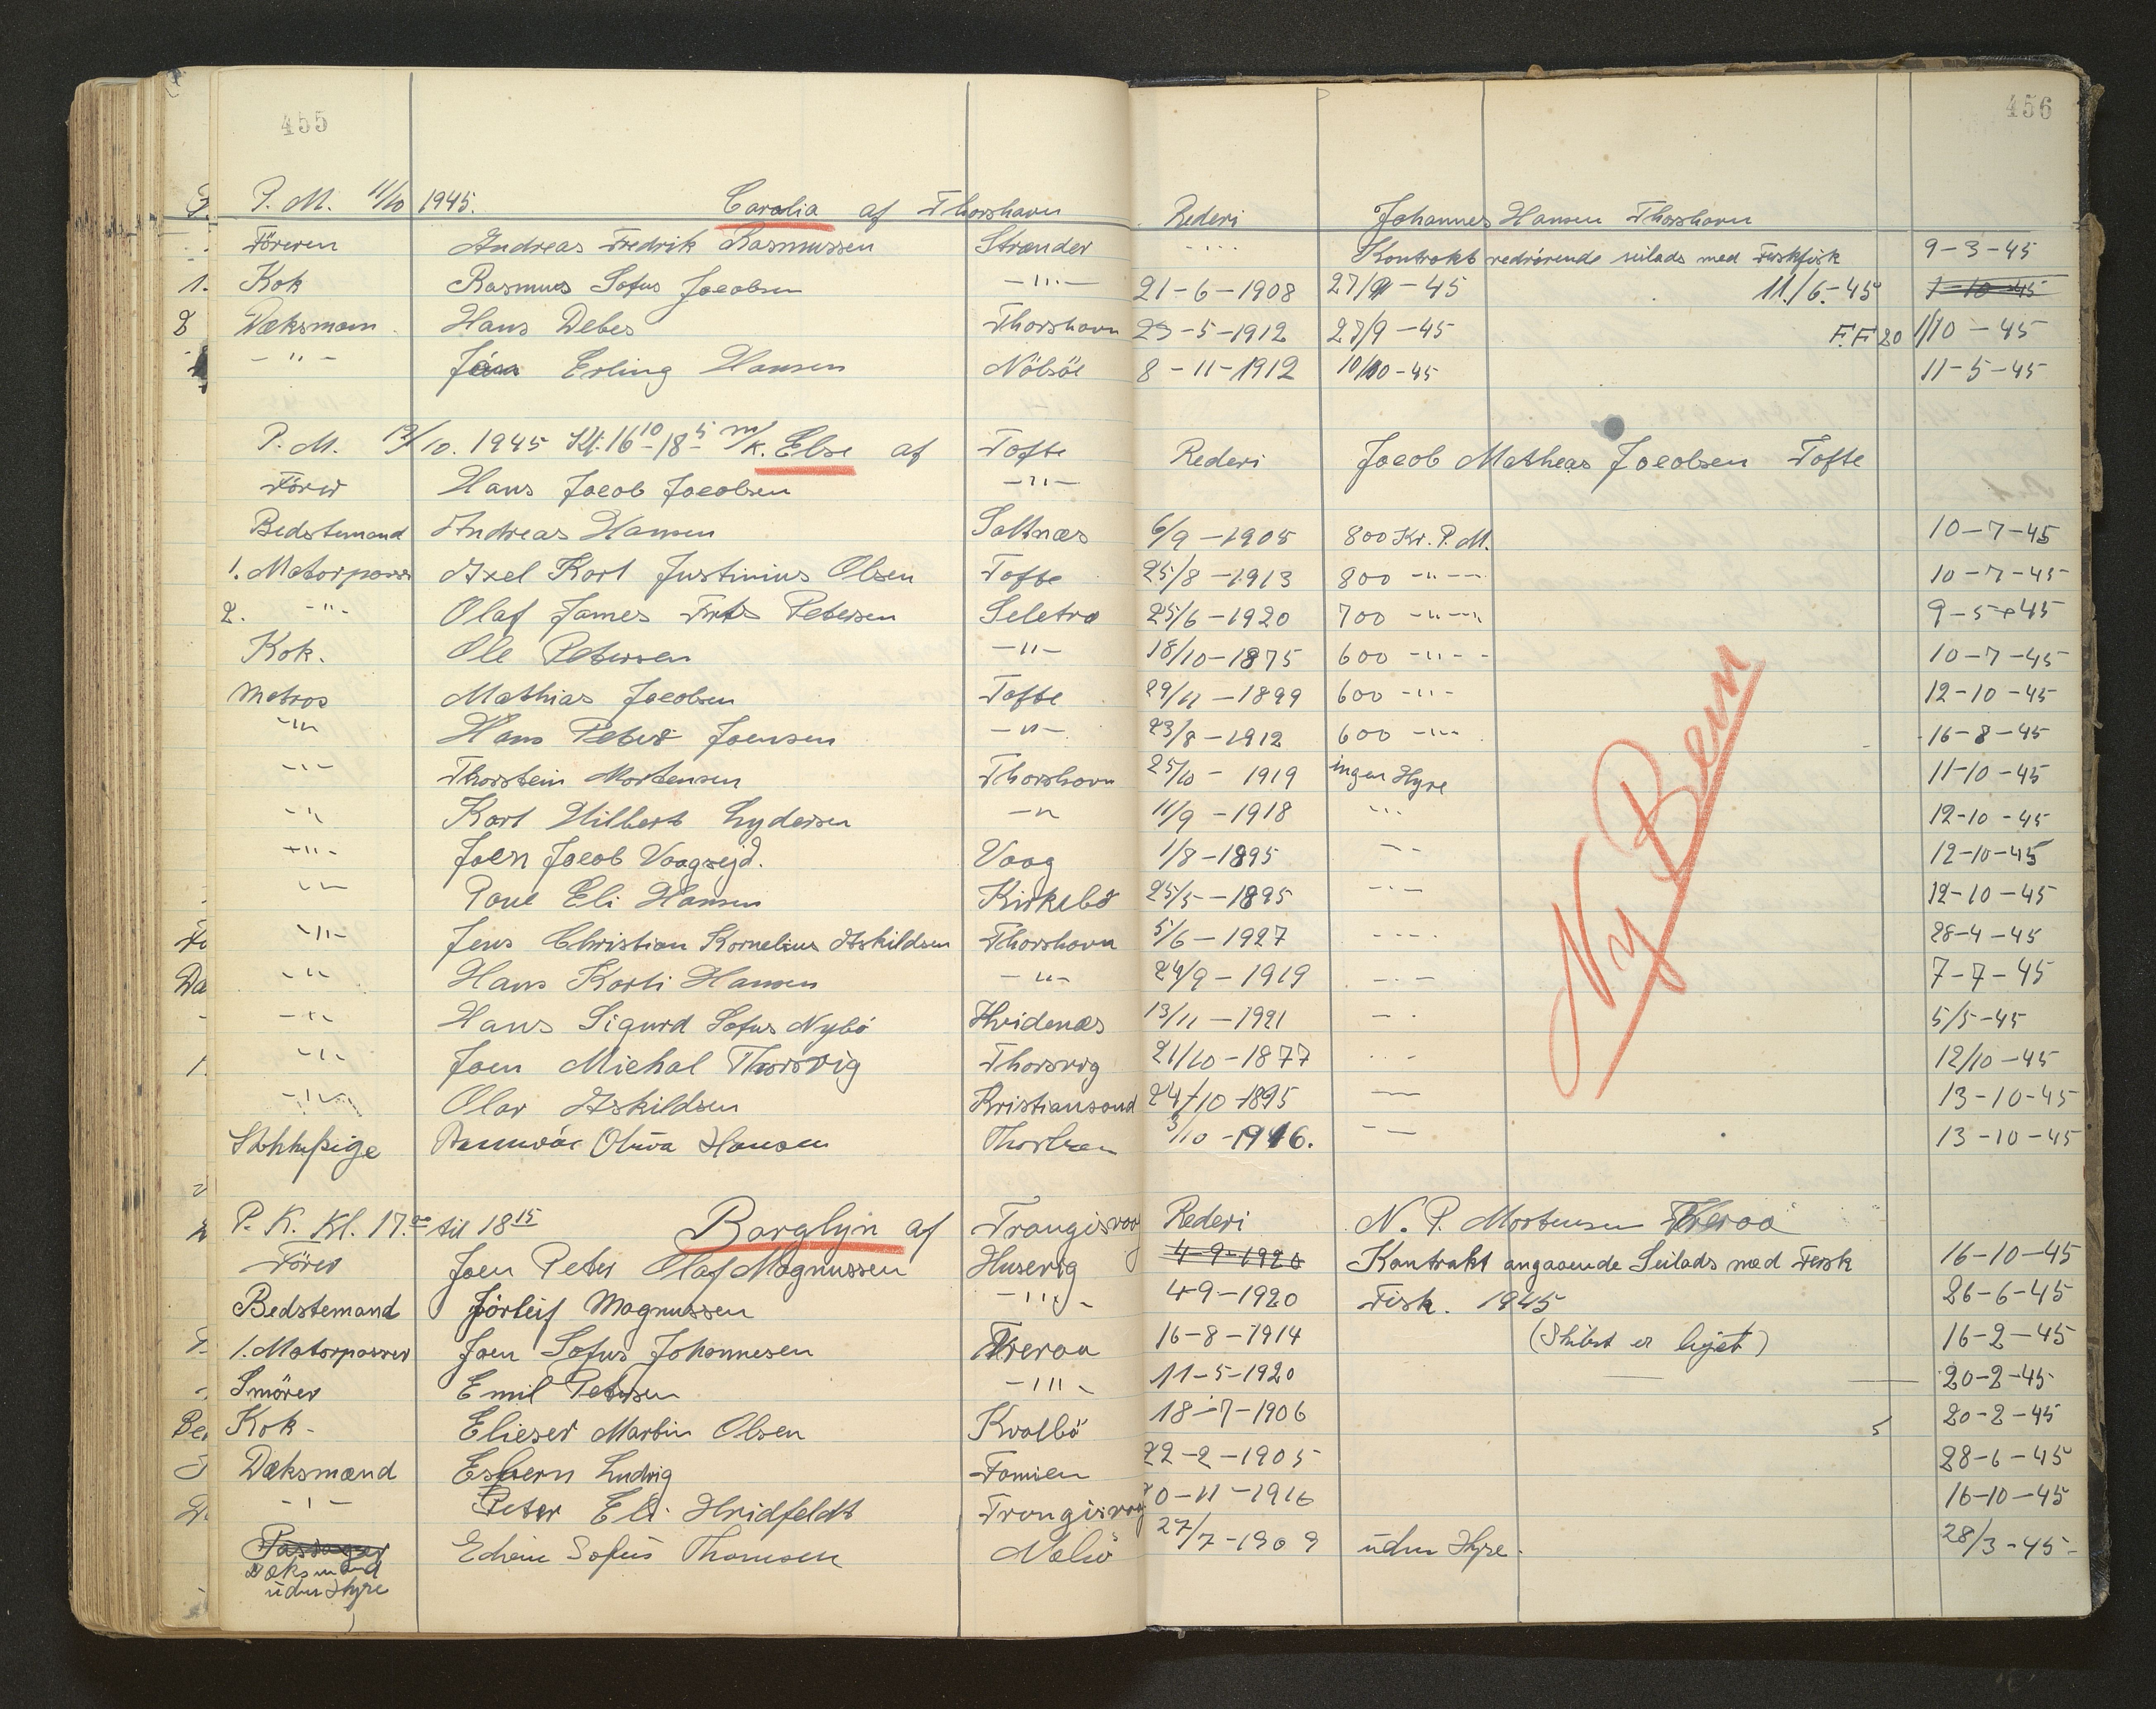 455
456
P. M. 11/10 1945. Caralia af Thorshavn Rederi Johannes Hansen Thorshavn
Föreren Andreas Fredrik Rasmussen Strænder - " - Kontrakt vedrörende seilads med Ferskfisk 9-3-45
1. Kok Rasmus Sofus Jacobsen - " - 21-6-1908 27/9-45 11./6.-45 1-10-45
2 Dæksmann Hans Debes Thorshavn 23-5-1912 27/9-45 F.F 20 1/10-45
- " - Erling Hansen Nölsöe 8-11-1912 10/10-45 11-5-45
P. M. 13/10. 1945 Kl. 16 10 - 18 5 m/k. Else af Tofte Rederi Jacob Matheas Jacobsen Tofte
Förer Hans Jacob Jacobsen - " -
Bedstemand Andreas Hansen Saltnæs 6/9-1905 800 Kr. P.M. 10-7-45
1. Motorpasser Axel Karl Justinius Olsen Tofte 25/8-1913 800 - " - 10-7-45
2. - " - Olaf James Petersen Seletra 25/6-1920 700 - " - 9-5-45
Kok. Ole Petersen - " - 18/10-1875 600 - " - 10-7-45
Matros Mathias Jacobsen Tofte 29/11-1899 600 - " - 12-10-45
- " - Hans Peter Joensen - " - 23/8-1912 600 - " - 16-8-45
- " - Thorstein Mortensen Thorshavn 25/10-1919 ingen Hyre 11-10-45
- " - Karl Hilbert Lydersen - " - 11/9-1918 - " - 12-10-45
- " - Joen Jacob Vaagsejd. Vaag 1/8-1895 - " - 12-10-45
- " - Poul Eli Hansen Kirkebö 25/5-1895 - " - 12-10-45
- " - Jens Christian Kornelius Askildsen Thorshavn 5/6-1927 - " - 28-4-45
- " - Hans Karli Hansen - " - 24/9-1919 - " - 7-7-45
- " - Hans Sigurd Sofus Nybö Hvidenæs 13/11-1921 - " - 5/5-45
- " - Joen Michal Thorsvig Thorsvig 21/10-1877 - " - 12/10-45
- " - Olav Askildsen Kristiansand 24/10-1895 - " - 13-10-45
Oliva Hansen 3/10-1916. - " - 13-10-45
Ny Bem
P. K. Kl. 17.00 til 18 15 Barglyn af Trangisvaag Rederi N. P. Mortensen Tveraa
Förer Joen Peter Olaf Magnussen Husevig 4-9-1920 Kontrakt angaaende Seilads med Fersk 16-10-45
Bedstemand Jörleif Magnussen - " - 4-9-1920 Fisk. 1945 26-6-45
1. Motorpasser Joen Sofus Johannesen Tveraa 16-8-1914 (Skibet er lejet) 16-2-45
Smörer Emil Petersen - " - 11-5-1920 20-2-45
Kok - Elieser Martin Olsen Kvalbö 18-7-1906 20-2-45
Dæksmænd Esbern Ludvig Famien 22-2-1905 28-6-45
- " - Peter Eli Hvidfeldt Trangisvaag 20-11-1916 16-10-45
Passager Sofus Thomsen 27/7-1909 uden Hyre. 28/3-45
Dæksmand
uden Hyre